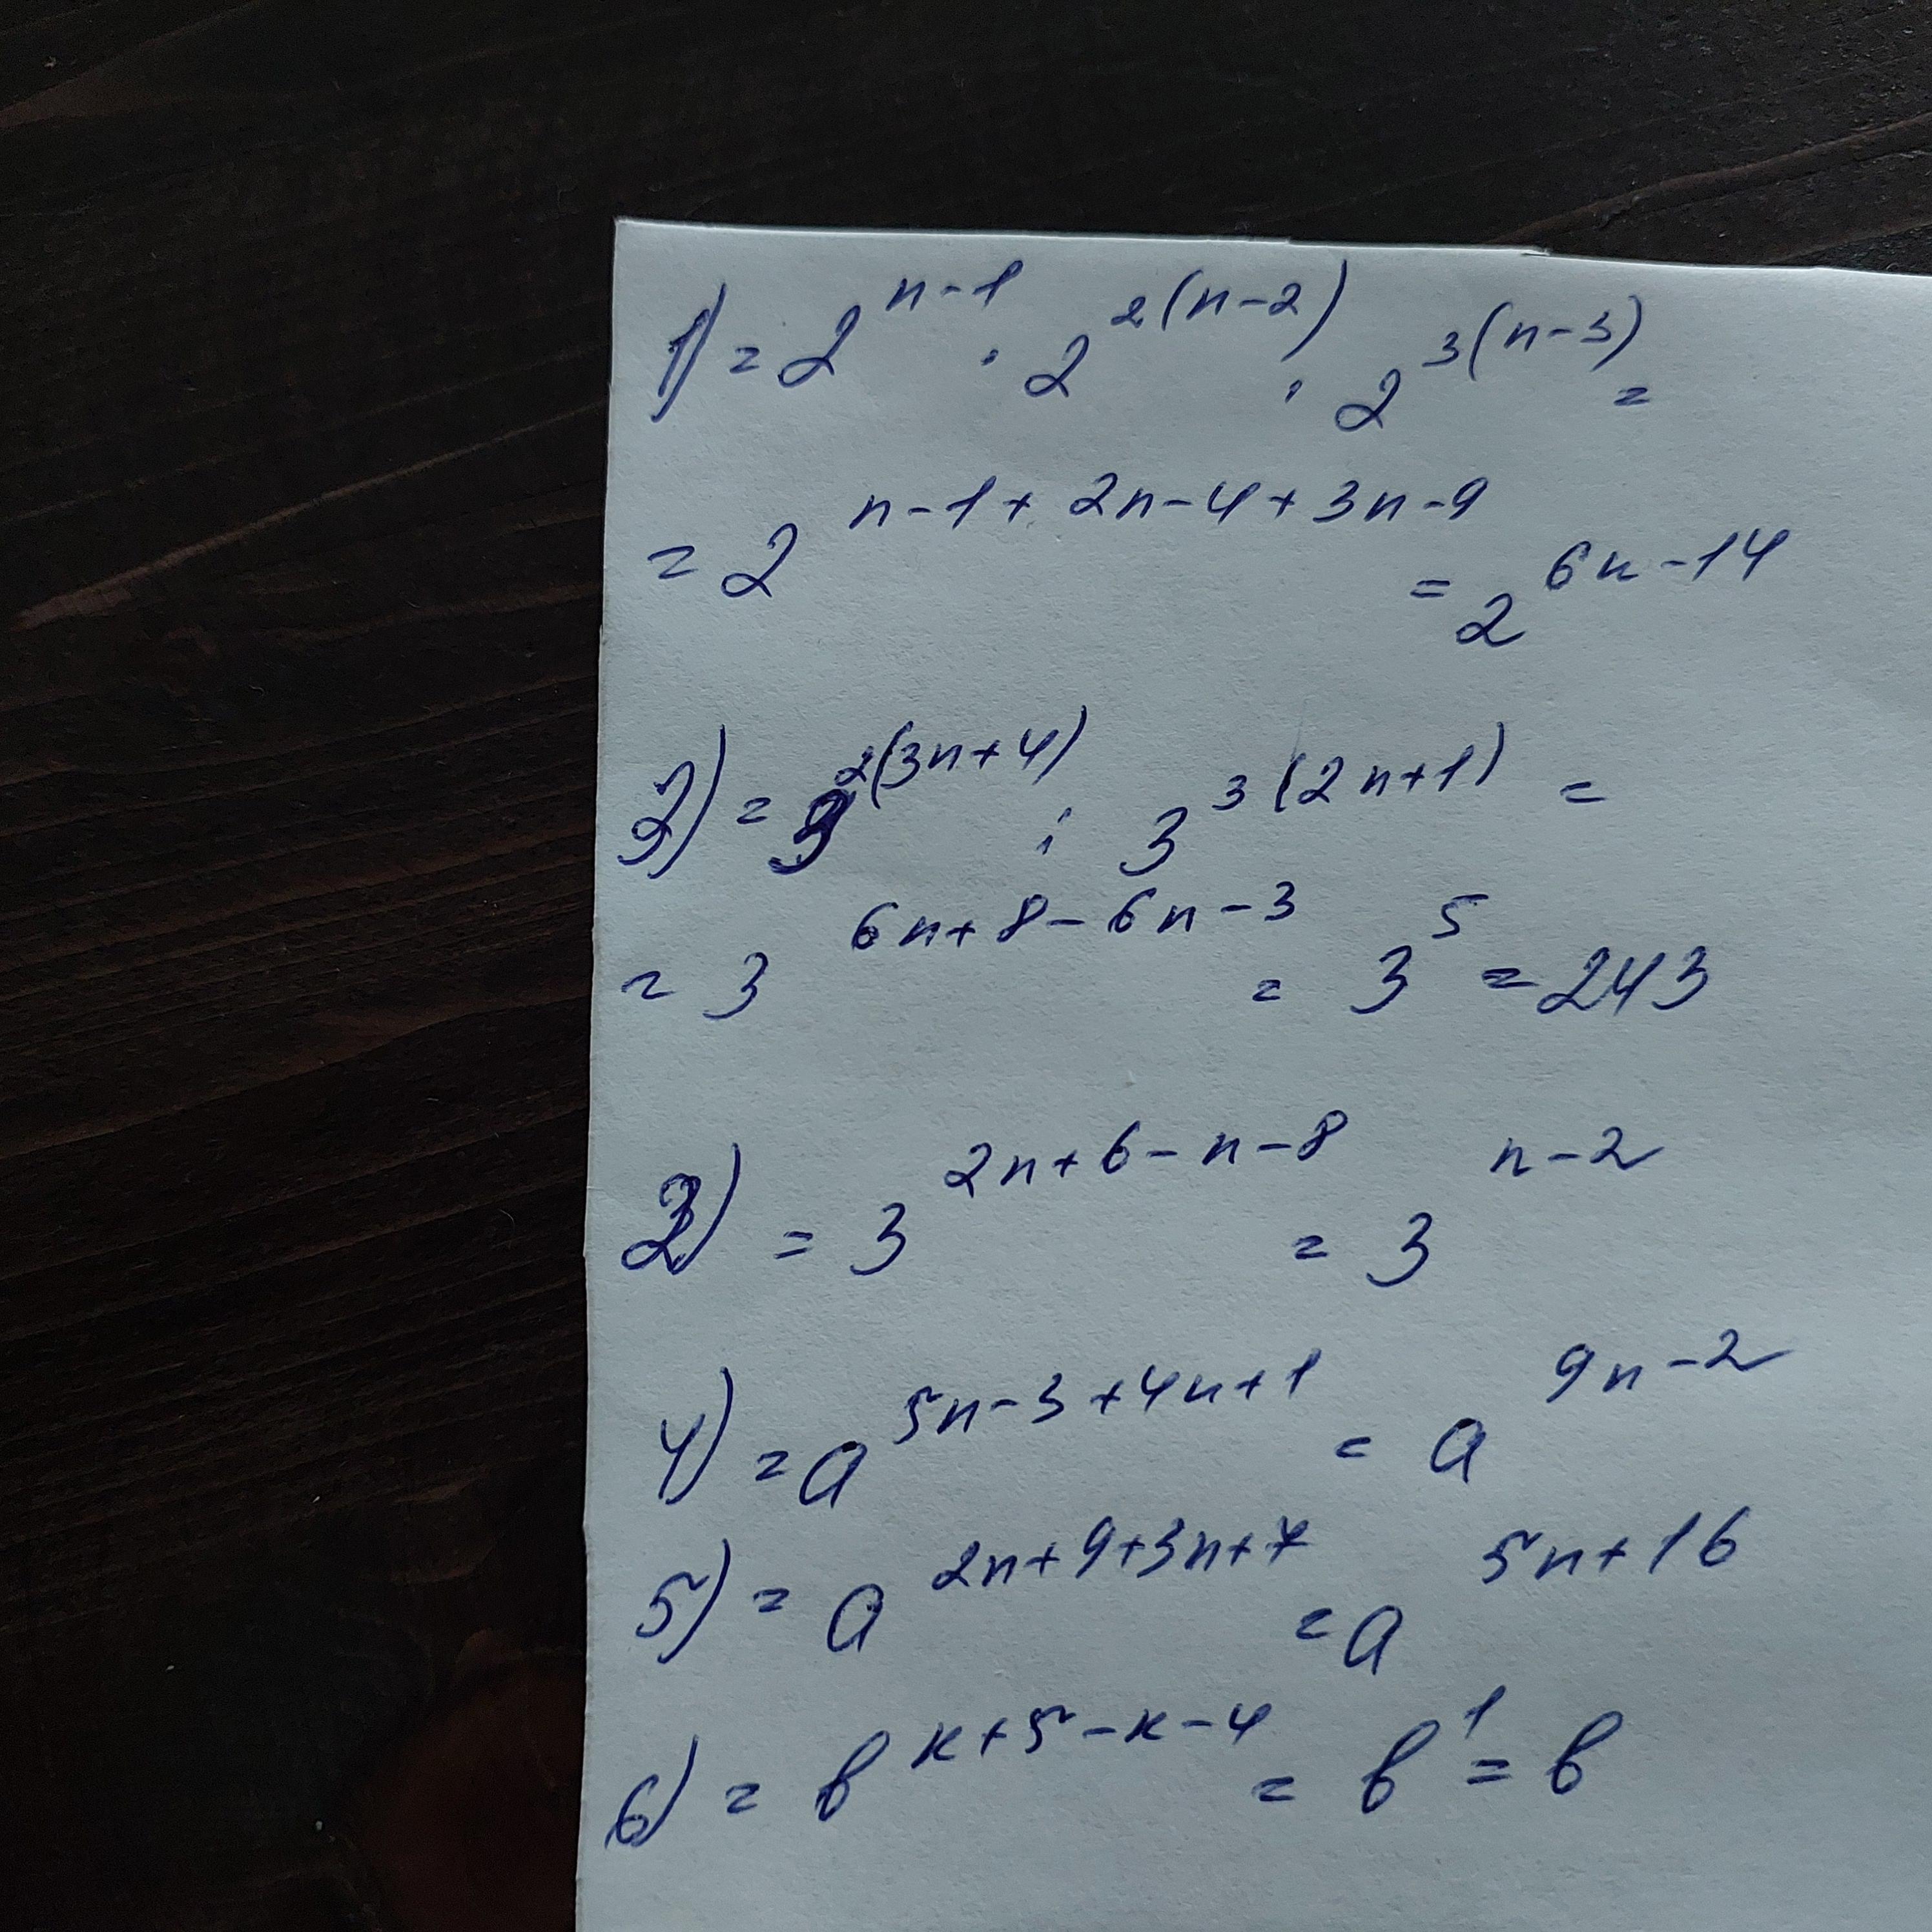 1) = 2^(n-1) · 2^(2(n-2)) · 2^(3(n-3)) =
= 2^(n-1+2n-4+3n-9) = 2^(6n-14)
2) = 3^(2(3n+4)) : 3^(3(2n+1)) =
= 3^(6n+8-6n-3) = 3^5 = 243
3) = 3^(2n+6-n-8) = 3^(n-2)
4) = a^(5n-3+4n+1) = a^(9n-2)
5) = a^(2n+9+3n+7) = a^(5n+16)
6) = b^(k+5-k-4) = b^1 = b